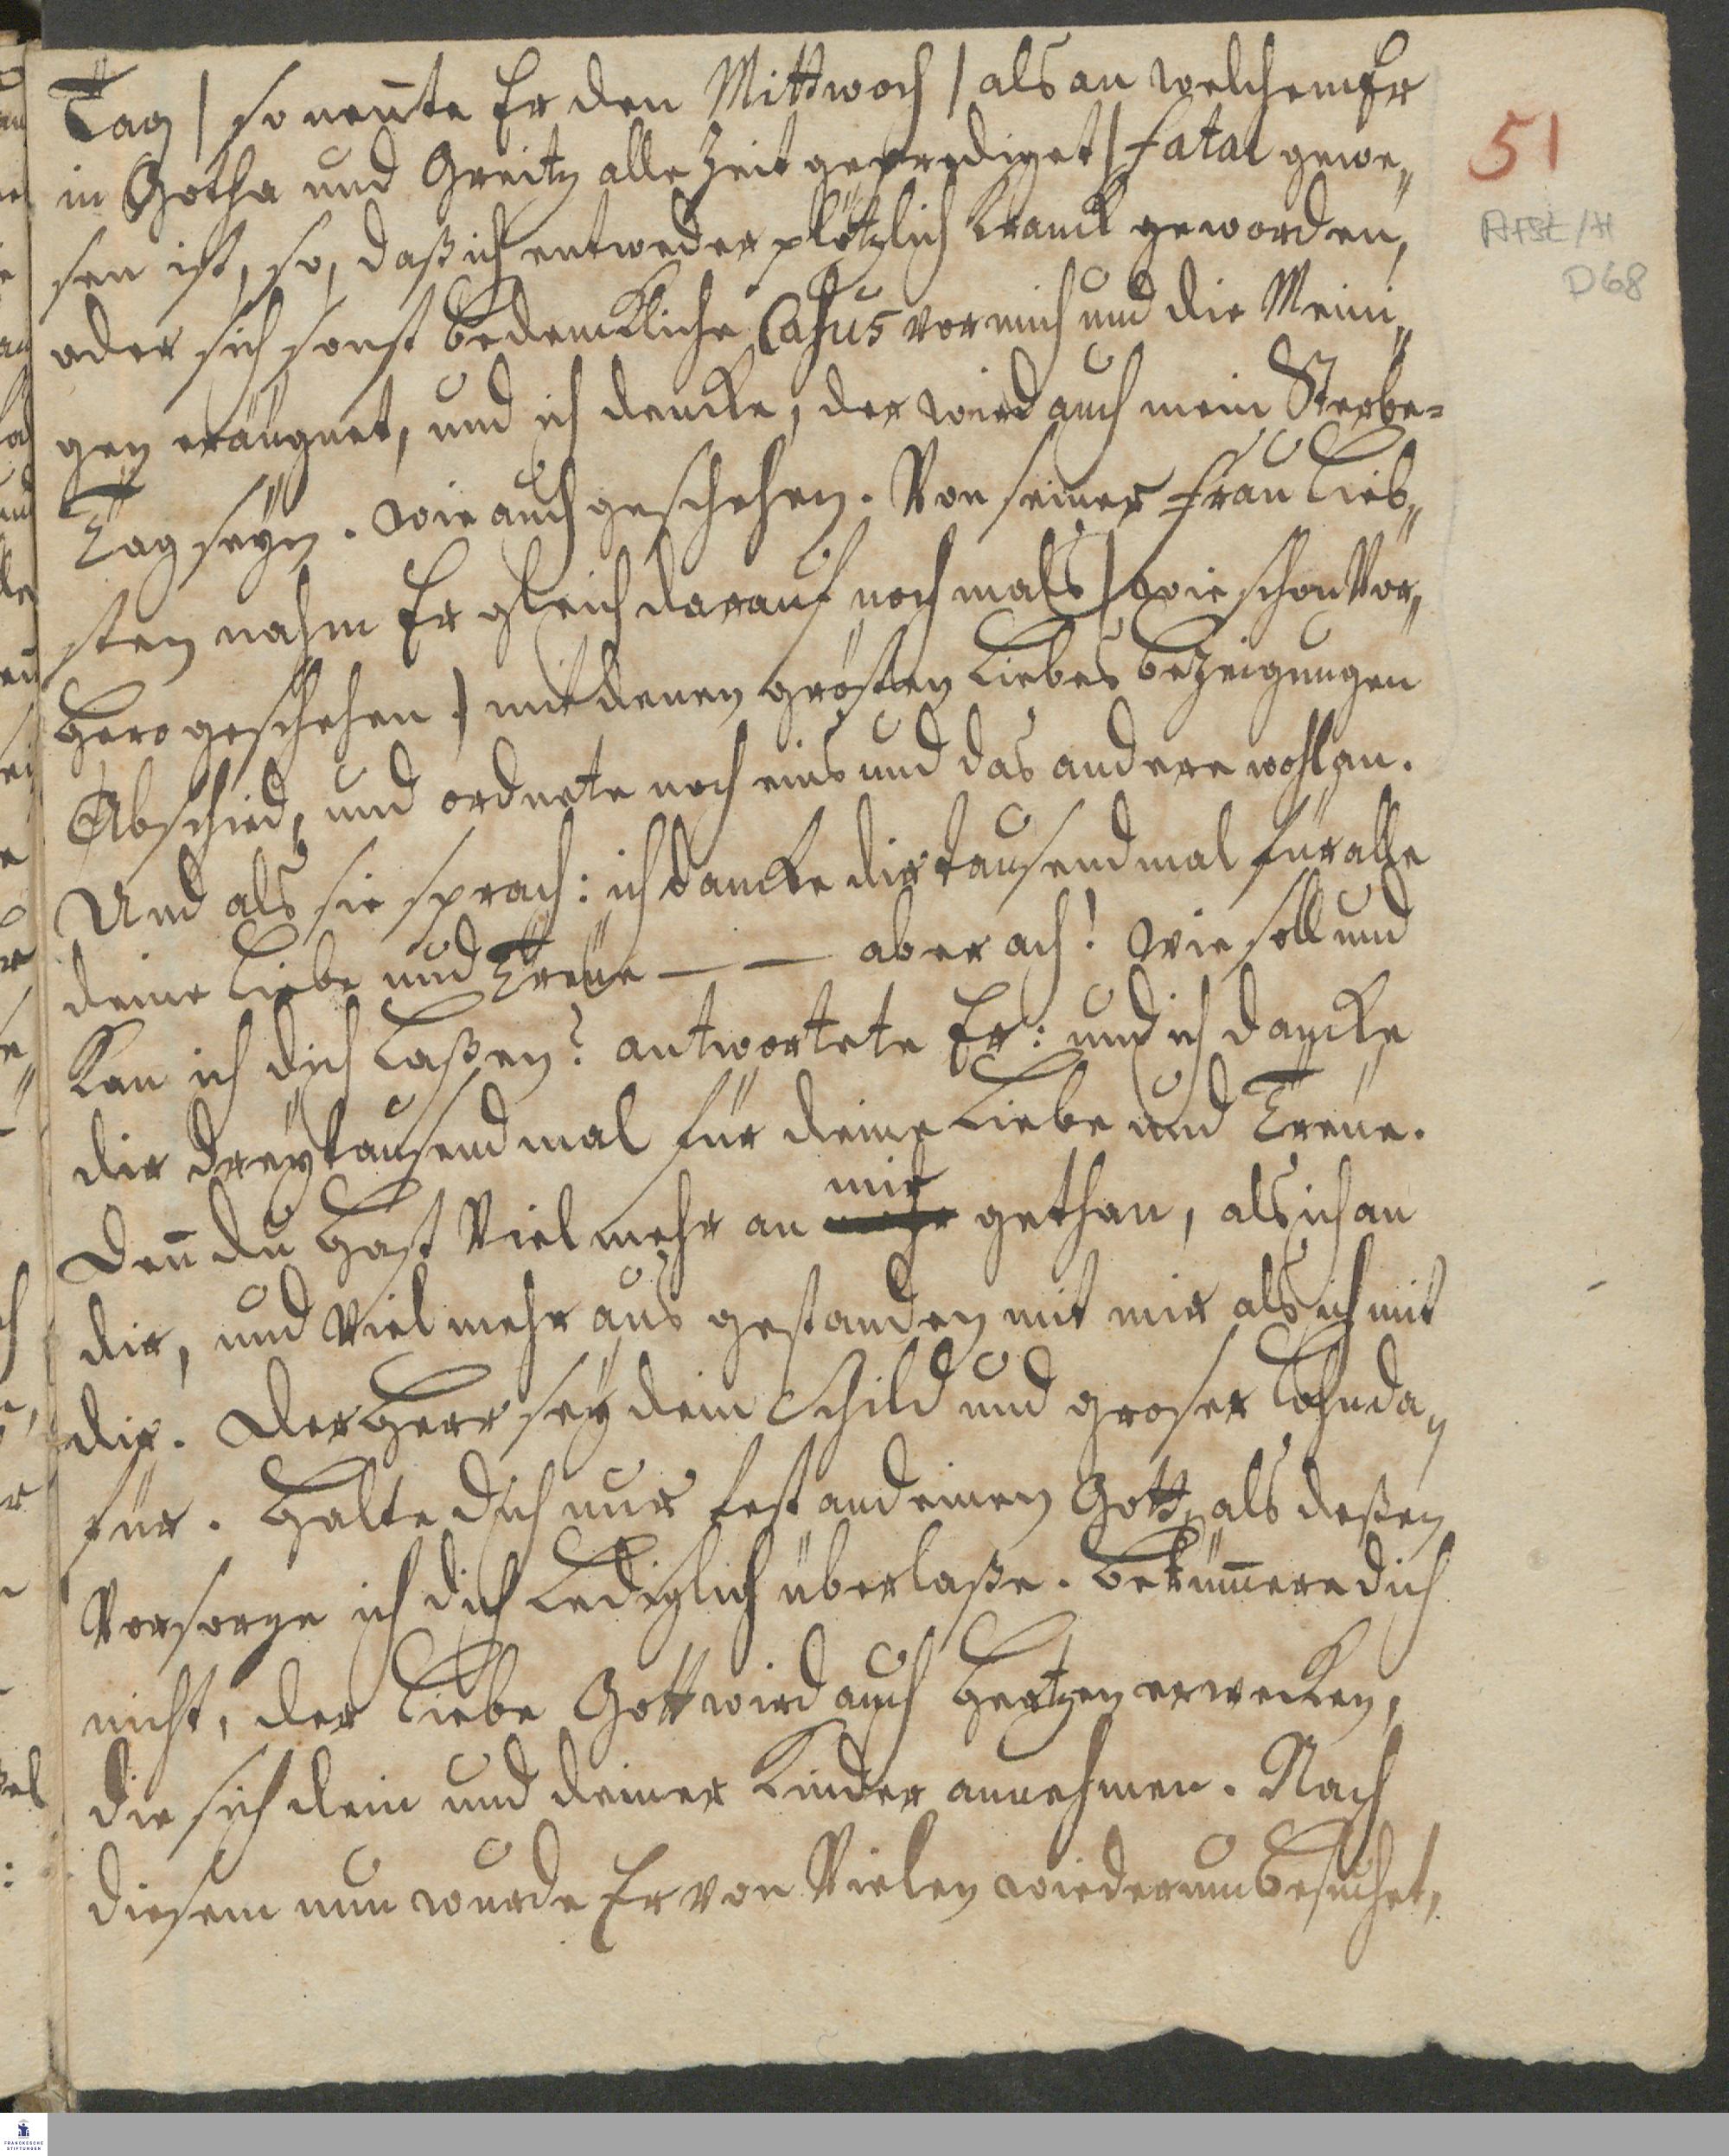 Tag / so nen̄te Er den Mittwoch / als an welchem Er
in Gotha und Greitz alle Zeit geprediget / fatal gewe„
sen ist, so, daß ich entweder plötzlich kranck geworden,
oder sich sonst bedenckliche Casus vor mich und die Meini„
gen eräugnet, und ich dencke, der wird auch mein Sterbe-
Tag seyn. Wie auch geschehen. Von seiner Frau Lieb„
sten nahm Er gleich darauf nochmals / wie schon vor„
hero geschehen / mit denen grösten Liebes bezeigungen
Abschied, und ordnete noch eins und das andere wohl an.
Und als sie sprach: ich dancke dir tausend mal für alle
deine Liebe und Treüe — — aber ach! wie soll und
kan ich dich laßen? antwortete Er: und ich dancke
dir dreytausend mal für deine Liebe und Treüe.
Den̄ du hast viel mehr an mir gethan, als ich an
dir, und viel mehr aus gestanden mit mir als ich mit
dir. Der Herr sey dein Schild und groser Lohn da„
für. Halte dich nur fest an deinen Gott, als deßen
Vorsorge ich dich lediglich überlaße. Beküm̄ere dich
nicht, der liebe Gott wird auch Hertzen erwecken,
die sich dein und deiner Kinder annehmen. Nach
diesem nun wurde Er von Vielen wiederum besuchet,
51
AFSt/H
D 68
FRANCKESCHE
STIFTUNGEN